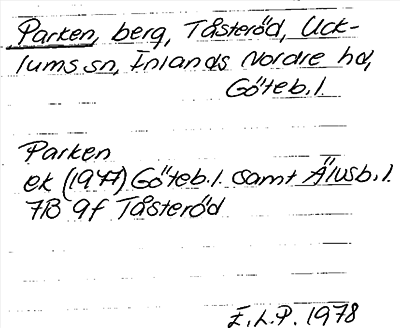 Parken, berg, Tåsteröd, Uck-
lums sn, Inlands Nordre hd,
Göteb. l.
Parken
ek (1977) Göteb. l. samt Älvsb. l.
7B 9f Tåsteröd
E.L.P. 1978